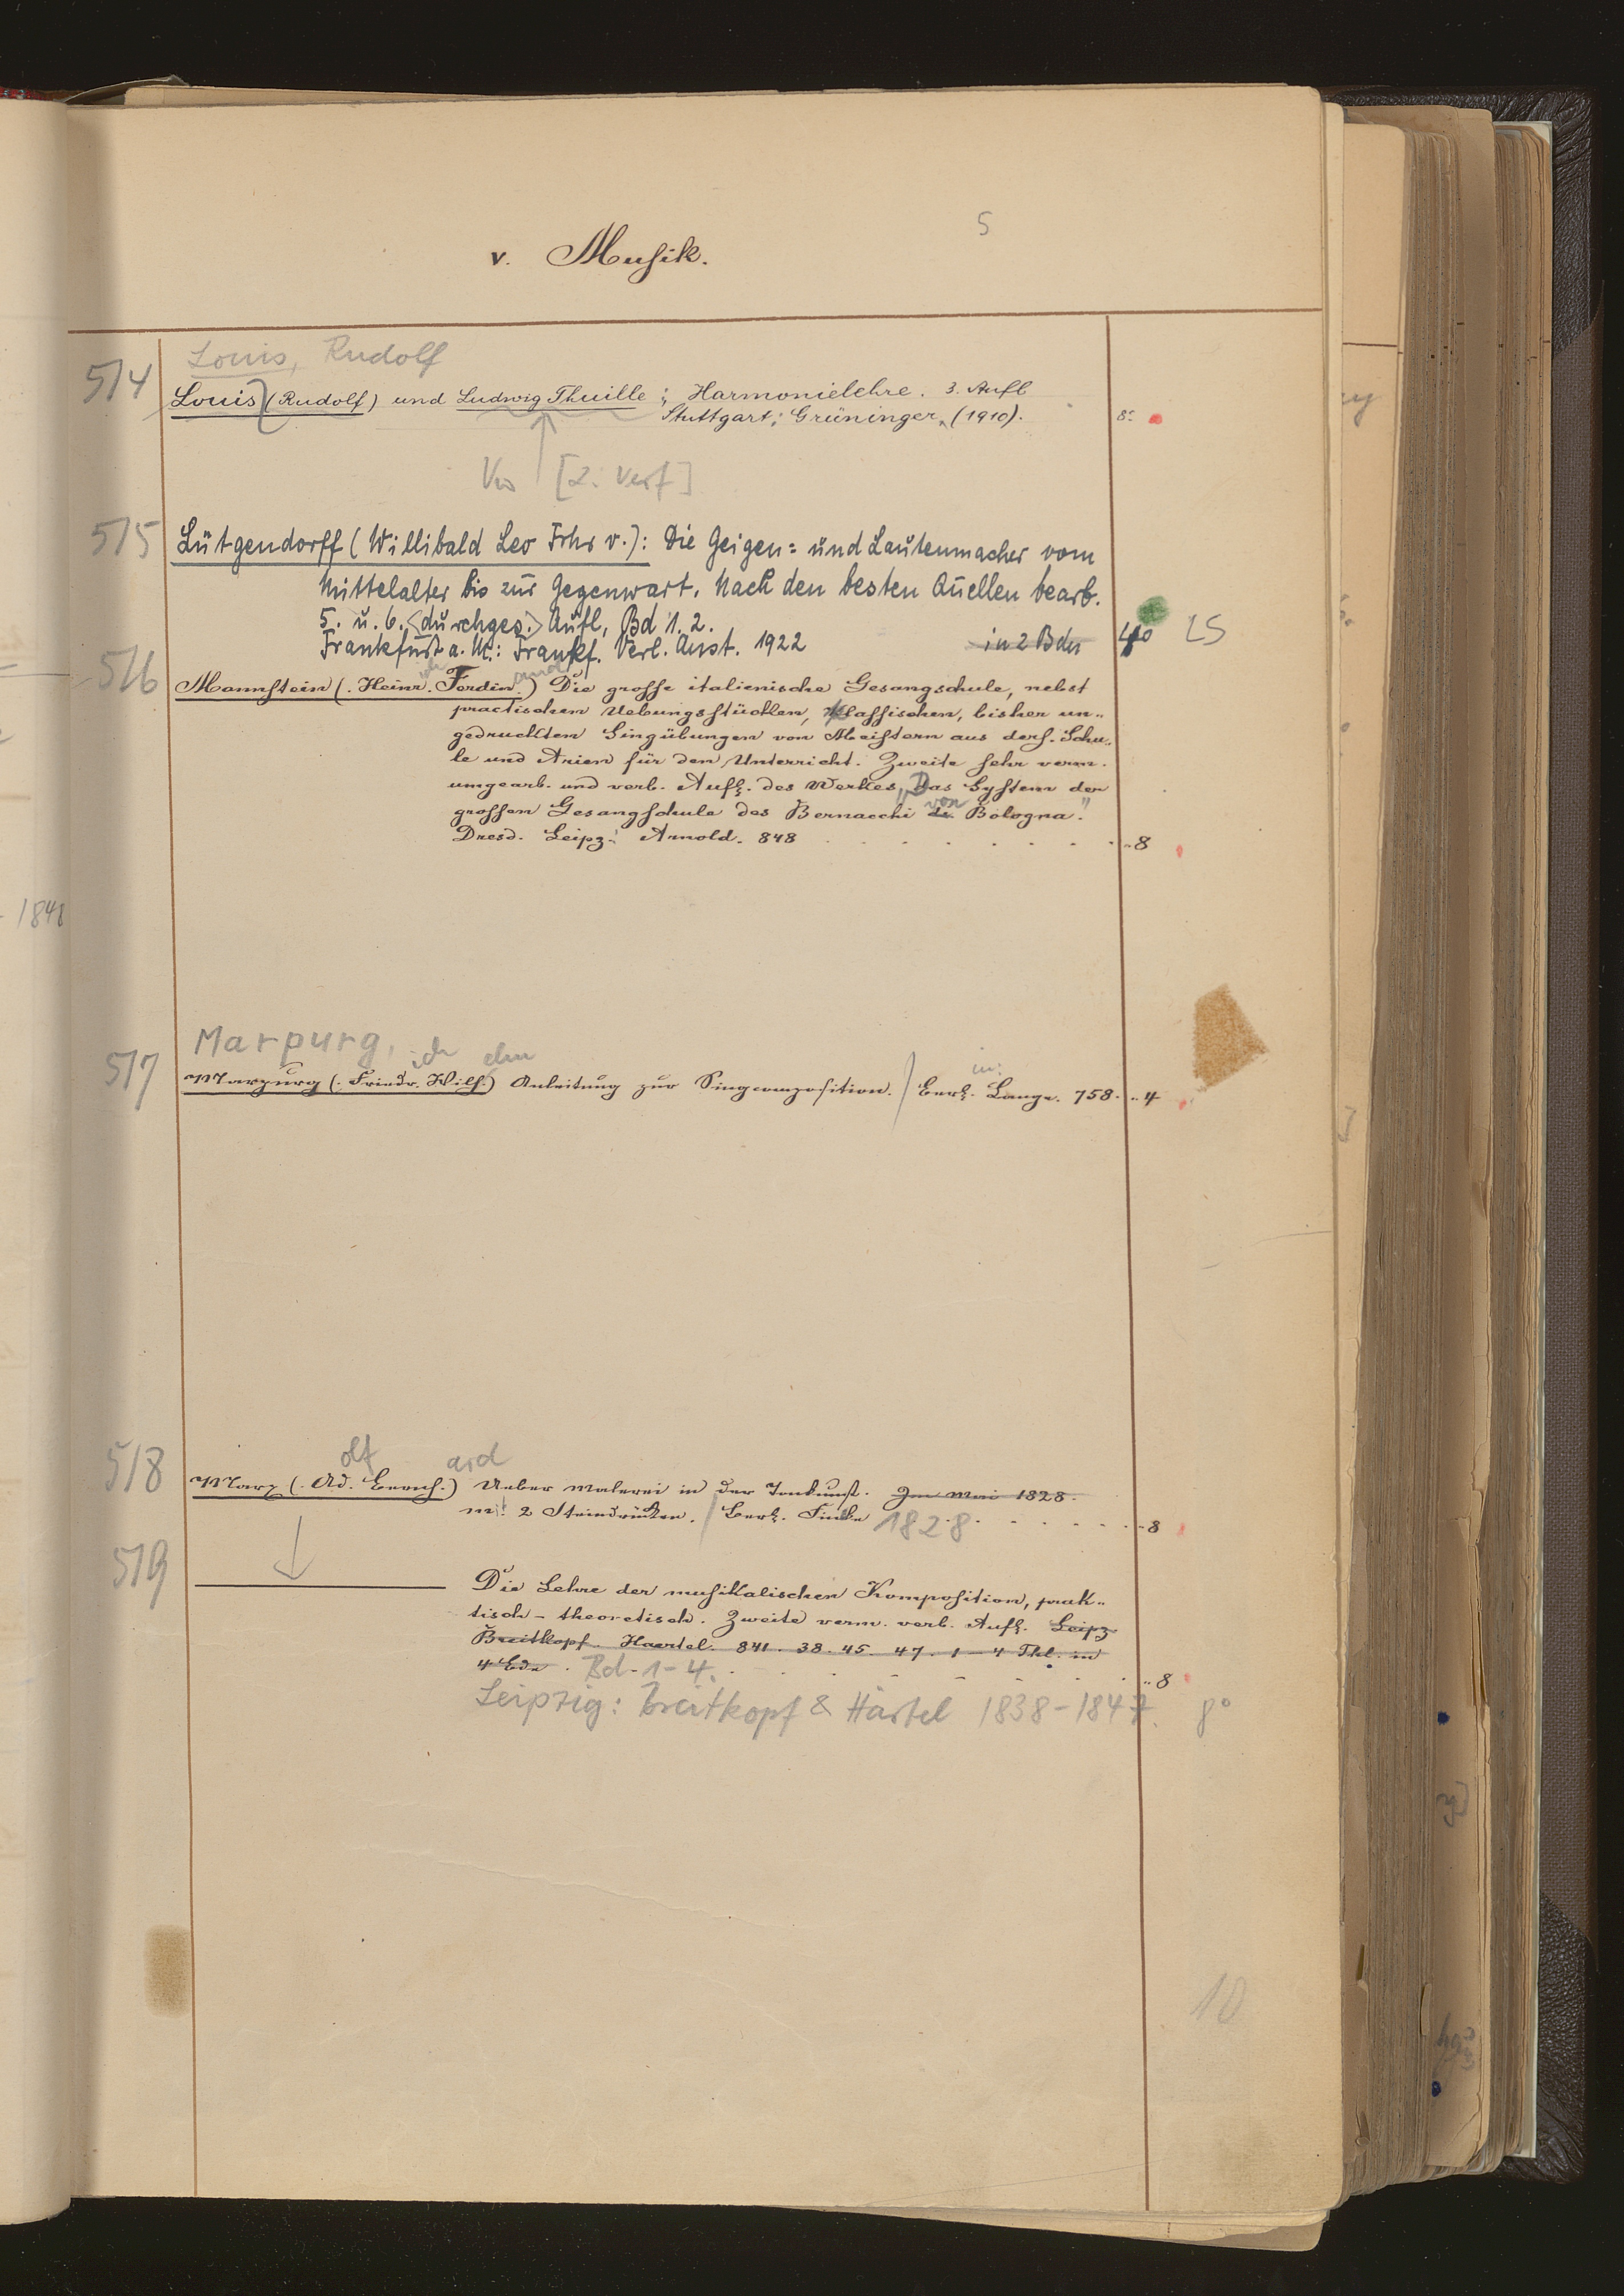 5
v. Musik.
Louis, Rudolf
514
Louis (Rudolf) und Ludwig Thuille; Harmonielehre. 3. Aufl
Stuttgart; Grüninger, (1910). 8:
Vw [2. Verf]
515 Lütgendorff (Willibald Leo Frhr v.): Die Geigen= und Lautenmacher vom
Mittelalter bis zur Gegenwart. Nach den besten Quellen bearb.
5. u. 6. <durchges.> Aufl, Bd 1. 2.
Frankfurt a. M.: Frankf. Verl. Anst. 1922 in 2 Bdn 4o LS
516 Mannstein (. Heinr. Ferdin.) Die grosse italienische Gesangschule, nebst
practischen Uebungsstücken, klassischen, bisher un„
gedruckten Singübungen von Meistern aus ders. Schu„
le und Arien für den Unterricht. Zweite sehr verm.
umgearb. und verb. Aufl. des Werkes „Das System der
grossen Gesangschule des Bernacchi von Bologna."
Dresd. Leipz. Arnold. 848 . . . . . . . „8
1848
Marpurg,
ich elm in:
517 Marpurg (. Friedr. Wilh.) Anleitung zur Singcomposition. / Berl. Lange. 758. „4
olf ard
518 Marx (. Ad. Bernh.) Ueber Malerei in der Tonkunst. Im Mai 1828.
mit 2 Steindrücken. / Berl. Finke 1828 . . . . . „8
519 Die Lehre der musikalischen Komposition, prak„
tisch - theoretisch. Zweite verm. verb. Aufl. Leipz
Breitkopf. Haertel. 841. 38. 45. 47. 1 - 4 Thl. in
4 Bdn. Bd. 1-4. . . . . . „8
Leipzig: Breitkopf & Härtel 1838-1847. 8°
10